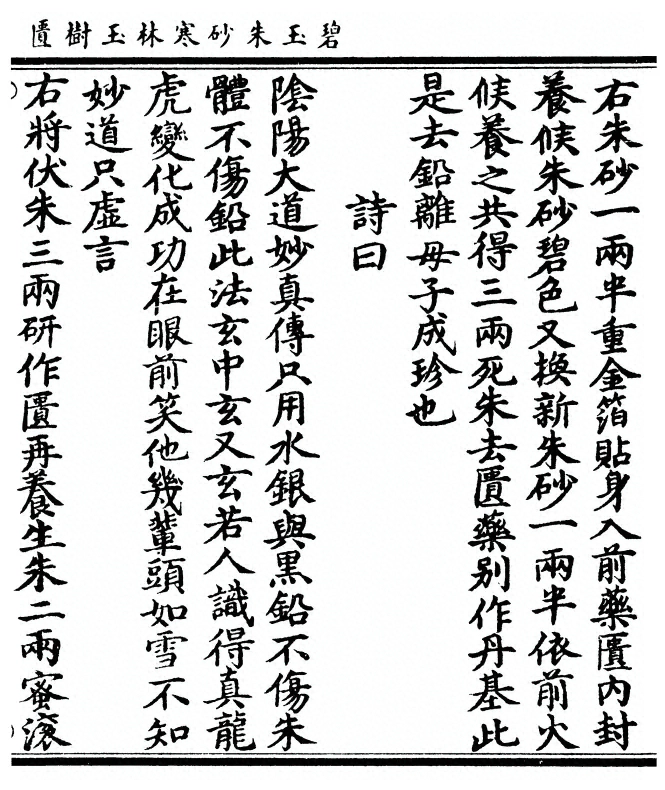 碧玉朱砂寒林玉樹匱
右朱砂一兩半重金箔貼身入前藥匱内封
養候朱砂碧色又換新朱砂一兩半依前火
候養之共得三兩死朱去匱藥别作丹基此
是去鉛離母子成珍也
詩曰
陰陽大道妙真傳只用水銀與黒鉛不傷朱
體不傷鉛此法玄中玄又玄若人識得真龍
虎變化成功在眼前笑他幾輩頭如雪不知
妙道只虛言
右將伏朱三兩研作匱再養生朱二兩蜜滾